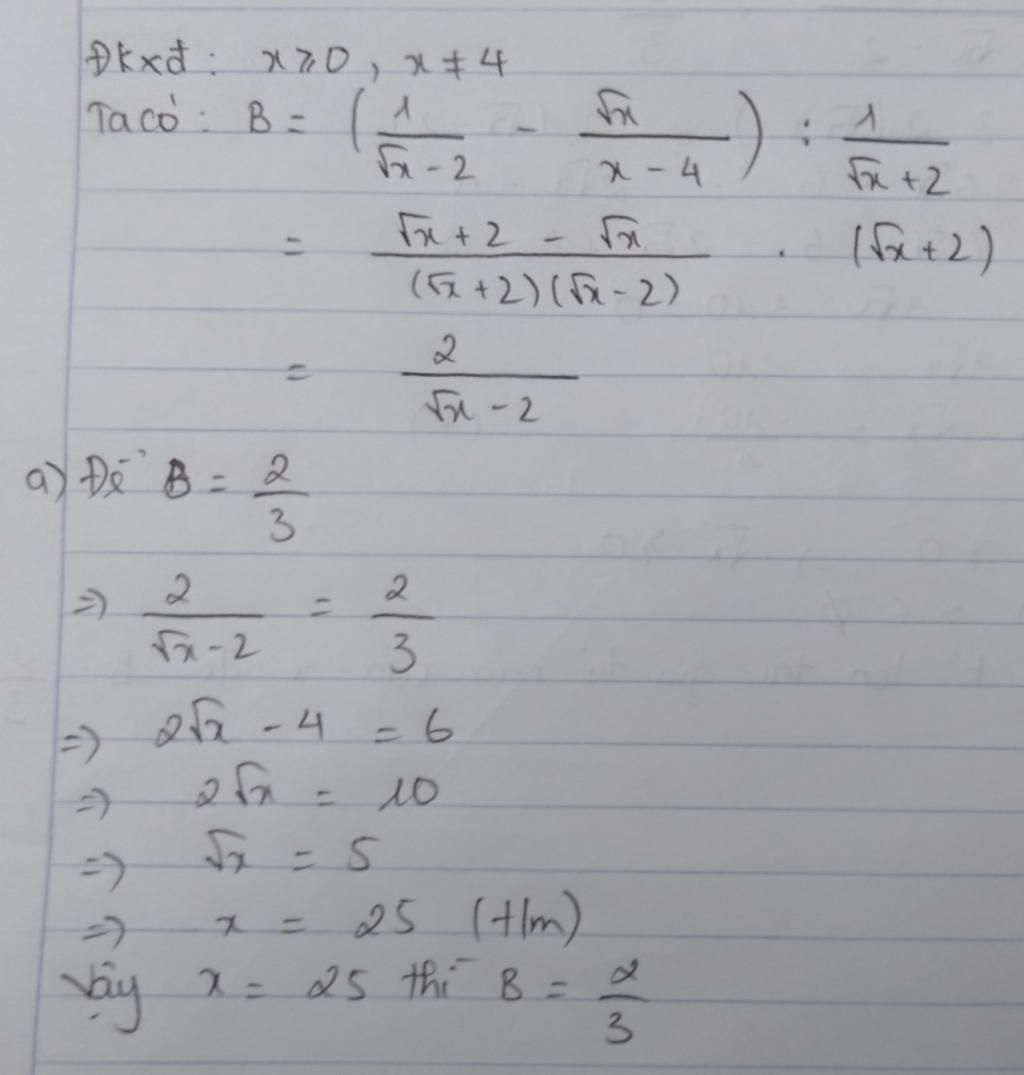 Đkxđ : x ⩾ 0 , x ≠ 4
Ta có : B = ( 1/(√x - 2) - √x/(x - 4) ) : 1/(√x + 2)
= (√x + 2 - √x)/((√x + 2)(√x - 2)) . (√x + 2)
= 2/(√x - 2)
a) Để B = 2/3
=> 2/(√x - 2) = 2/3
=> 2√x - 4 = 6
=> 2√x = 10
=> √x = 5
=> x = 25 (t/m)
Vậy x = 25 thì B = 2/3